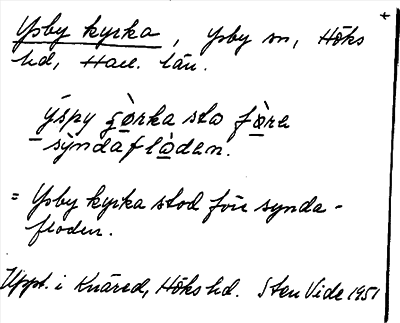 Ysby kyrka, Ysby sn, Höks
hd, Hall. län.
ýspy gòrka sto fòre
sỳndaflòdan.
= Ysby kyrka stod före synda-
floden.
Uppt. i Knäred, Höks hd. Sten Vide 1951